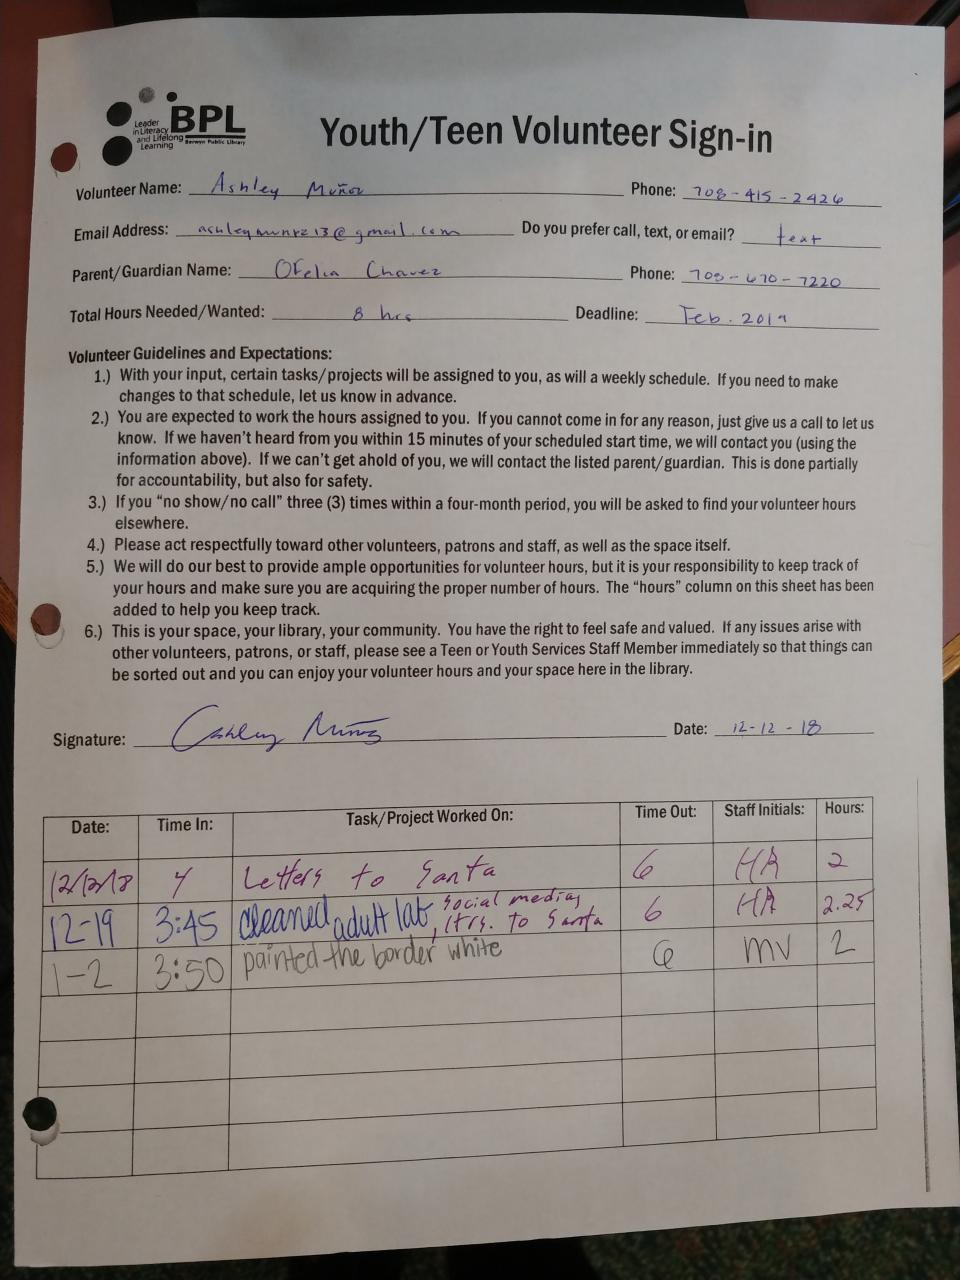 Leader
in Literacy
and Lifelong
Learning
BPL
Berwyn Public Library
Youth/Teen Volunteer Sign-in
Volunteer Name: Ashley Muñoz Phone: 708-415-2426
Email Address: ashleymunoz13@gmail.com Do you prefer call, text, or email? text
Parent/Guardian Name: Ofelia Chavez Phone: 708-670-7220
Total Hours Needed/Wanted: 8 hrs Deadline: Feb. 2019
Volunteer Guidelines and Expectations:
1.) With your input, certain tasks/projects will be assigned to you, as will a weekly schedule. If you need to make
changes to that schedule, let us know in advance.
2.) You are expected to work the hours assigned to you. If you cannot come in for any reason, just give us a call to let us
know. If we haven't heard from you within 15 minutes of your scheduled start time, we will contact you (using the
information above). If we can't get ahold of you, we will contact the listed parent/guardian. This is done partially
for accountability, but also for safety.
3.) If you “no show/no call” three (3) times within a four-month period, you will be asked to find your volunteer hours
elsewhere.
4.) Please act respectfully toward other volunteers, patrons and staff, as well as the space itself.
5.) We will do our best to provide ample opportunities for volunteer hours, but it is your responsibility to keep track of
your hours and make sure you are acquiring the proper number of hours. The “hours” column on this sheet has been
added to help you keep track.
6.) This is your space, your library, your community. You have the right to feel safe and valued. If any issues arise with
other volunteers, patrons, or staff, please see a Teen or Youth Services Staff Member immediately so that things can
be sorted out and you can enjoy your volunteer hours and your space here in the library.
Signature: Ashley Muñoz Date: 12-12-18
Date: Time In: Task/Project Worked On: Time Out: Staff Initials: Hours:
12/12/18 4 Letters to Santa 6 HA 2
12-19 3:45 cleaned adult lab, social media, ltrs. to Santa 6 HA 2.25
1-2 3:50 painted the border white 6 MV 2